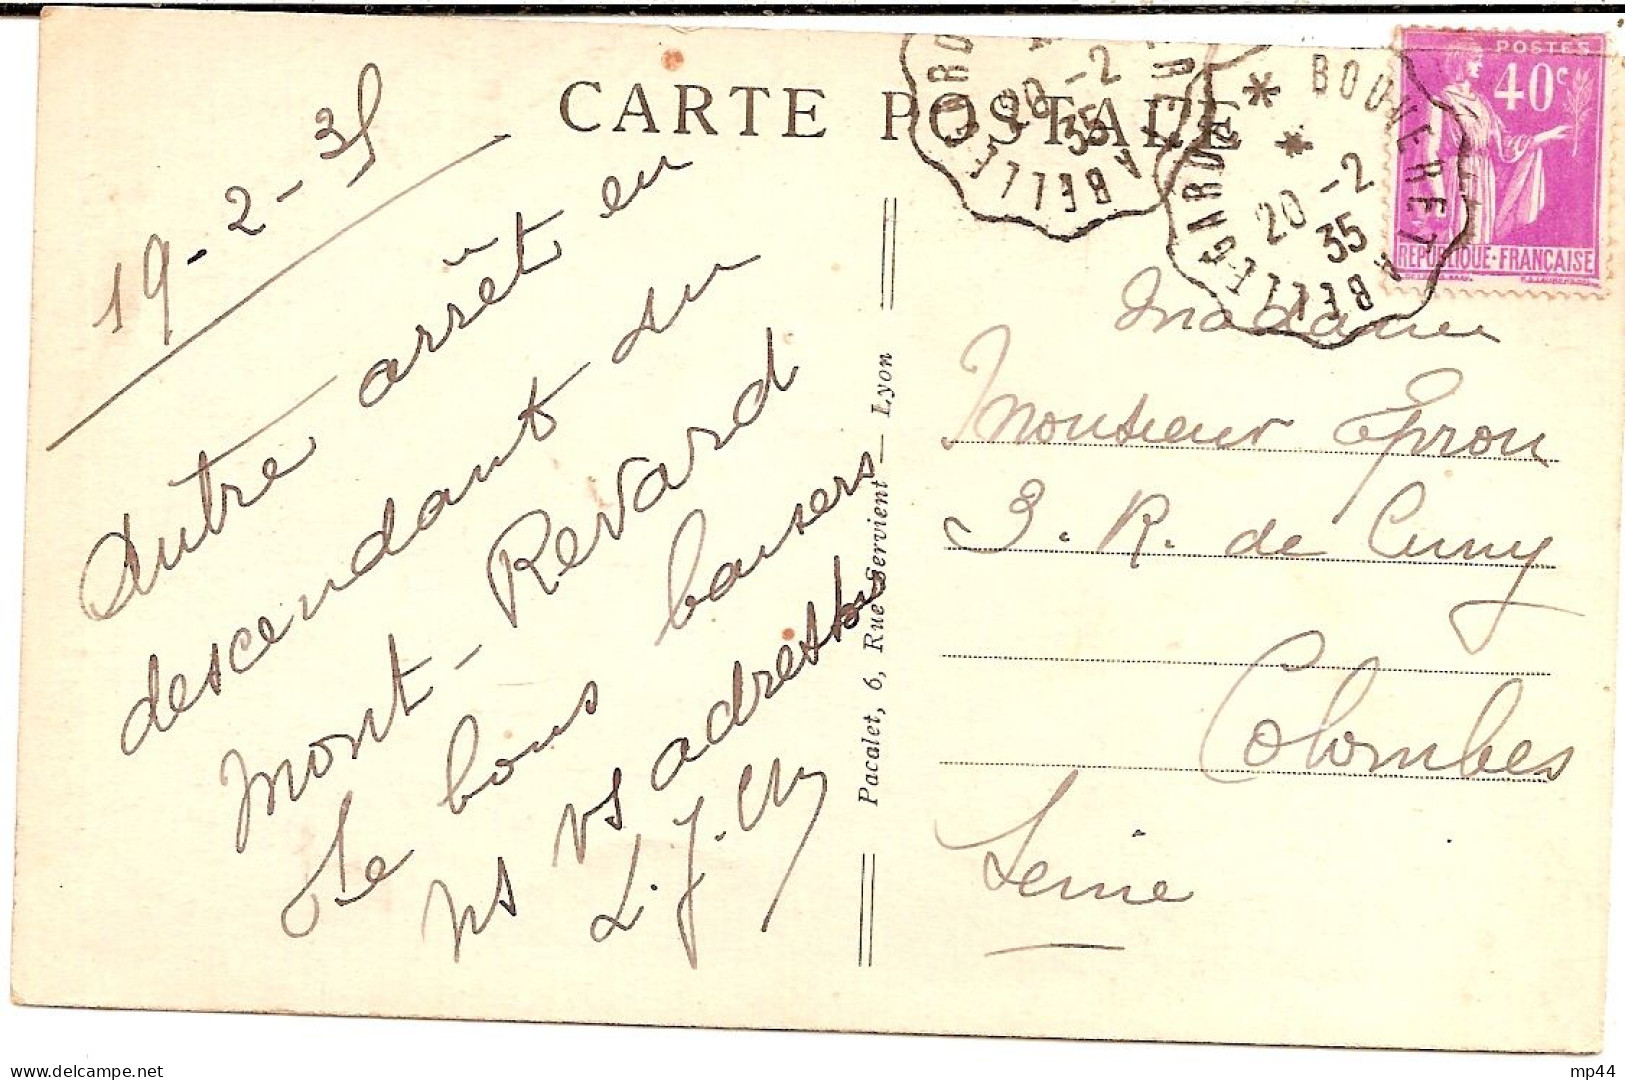 CARTE POSTALE
19-2-35
Autre arrêt en
descendant du
Mont-Revard
De bons baisers
ns vs adressons
L. J.
Pacalet, 6, Rue Servient — Lyon
BELLEGARDE
20-2
35
BOUVERET A BELLEGARDE
20-2
35
POSTES
40c
REPUBLIQUE·FRANÇAISE
Madame
Monsieur Epron
3. R. de Cuny
Colombes
Seine
mp44